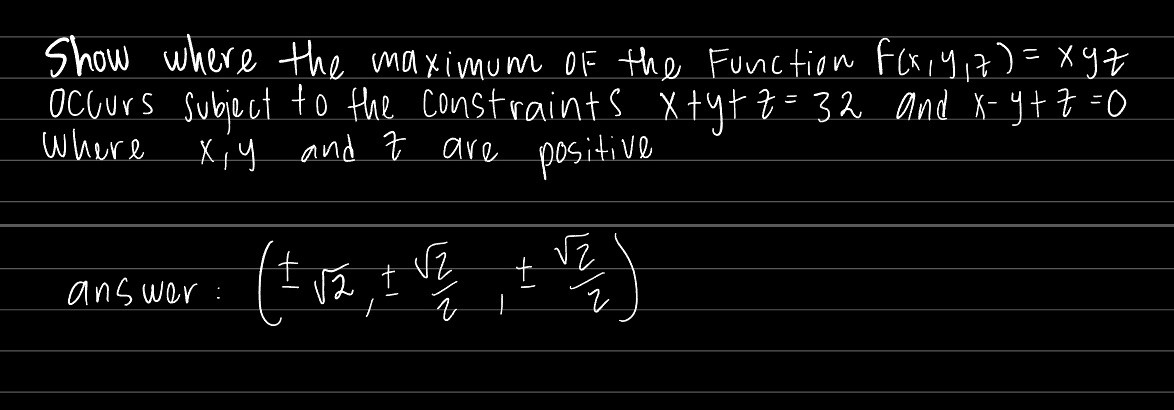 Show where the maximum of the Function f(x,y,z) = xyz
occurs subject to the constraints x+y+z=32 and x-y+z=0
where x,y and z are positive
answer: (±√2, ±√2/2, ±√2/2)